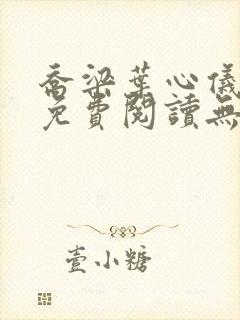 喬梁葉心儀
免費閱讀無
壹小糖